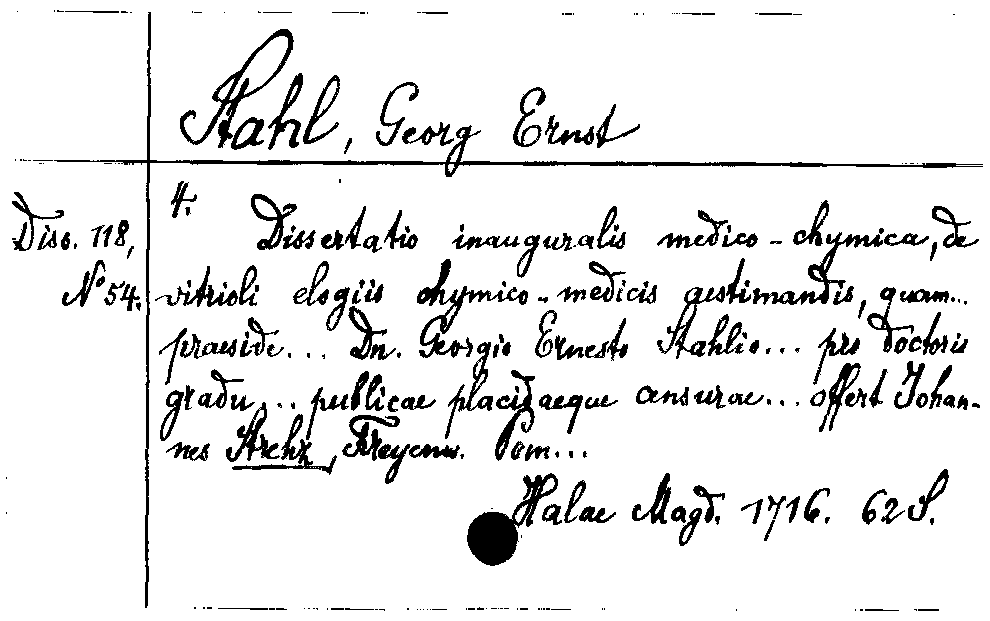 Stahl, Georg Ernst
Diss. 118,
No 54.
4.
Dissertatio inauguralis medico-chymica, de
vitrioli elogiis chymico-medicis aestimandis, quam...
praeside... Dn. Georgio Ernesto Stahlio... pro doctoris
gradu... publicae placidaeque censurae... offert Johan-
nes Pom...
Halae Magd. 1716. 62 S.